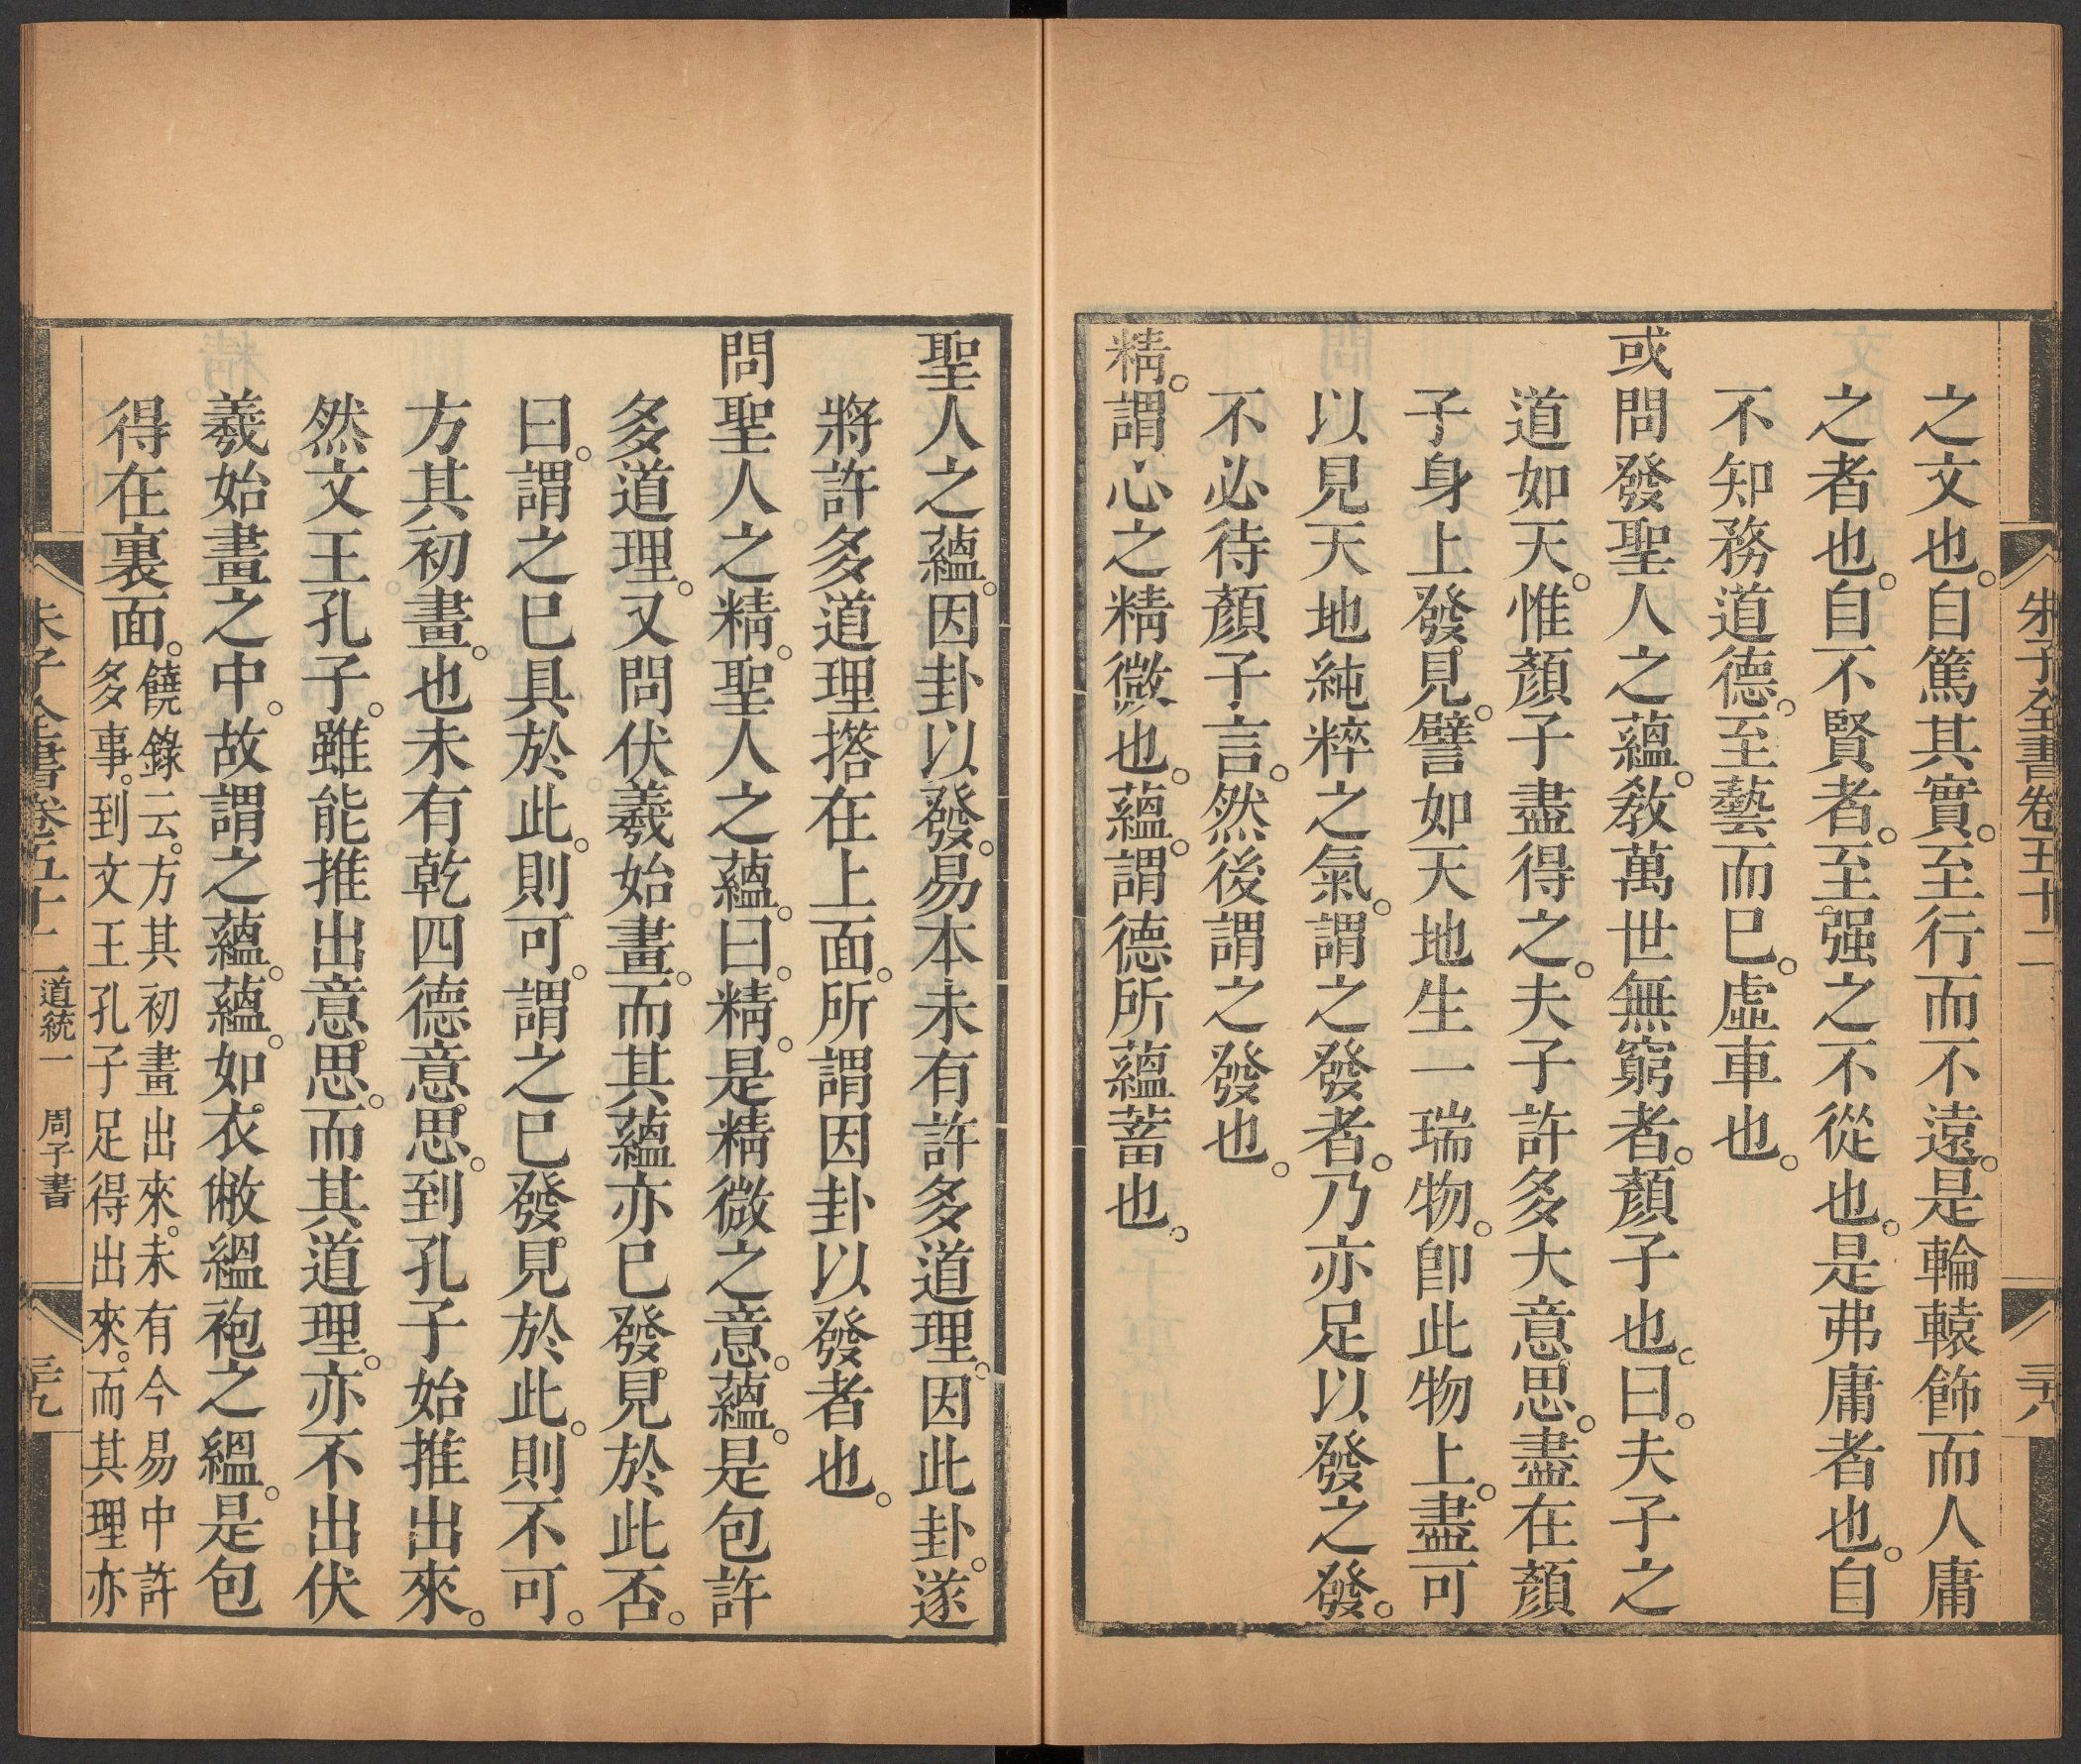 朱子全書卷五十二
三十八
之文也。自篤其實。至行而不遠。是輪轅飾而人庸
之者也。自不賢者。至强之不從也。是弗庸者也。自
不知務道德。至藝而已。虛車也。
或問發聖人之蘊。敎萬世無窮者。顏子也。曰。夫子之
道如天。惟顏子盡得之。夫子許多大意思。盡在顏
子身上發見。譬如天地生一瑞物。卽此物上。盡可
以見天地純粹之氣。謂之發者。乃亦足以發之發。
不必待顏子言。然後謂之發也。
精。謂心之精微也。蘊。謂德所蘊蓄也。
聖人之蘊。因卦以發。易本未有許多道理。因此卦。遂
將許多道理撘在上面。所謂因卦以發者也。
問聖人之精。聖人之蘊。曰。精。是精微之意。蘊。是包許
多道理。又問伏羲始畫。而其蘊亦已發見於此否。
曰。謂之已具於此。則可。謂之已發見於此。則不可。
方其初畫。也未有乾四德意思。到孔子始推出來。
然文王孔子。雖能推出意思。而其道理。亦不出伏
羲始畫之中。故謂之蘊。蘊。如衣敝縕袍之縕。是包
得在裏面。饒錄云。方其初畫出來。未有今易中許
多事。到文王孔子足得出來。而其理亦
朱子全書卷五十二 道統一 周子書
三十九